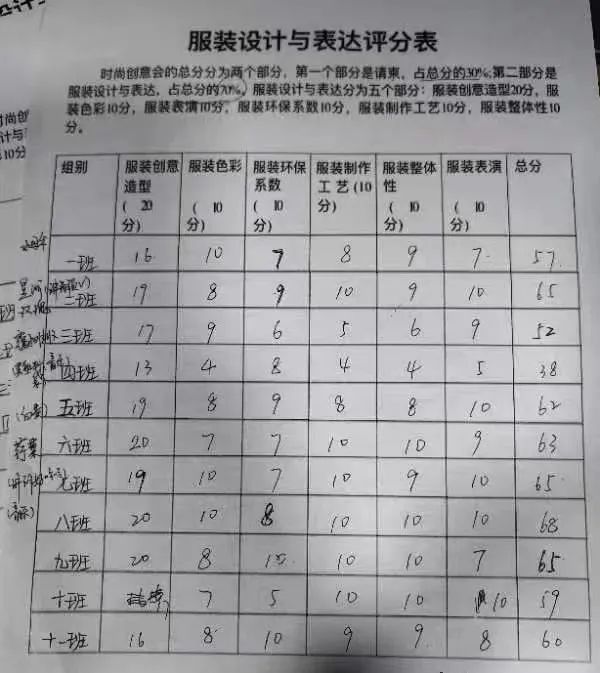 服装设计与表达评分表
时尚创意会的总分分为两个部分，第一个部分是请柬，占总分的30%;第二部分是
服装设计与表达，占总分的70%，服装设计与表达分为五个部分：服装创意造型20分，服
装色彩10分，服装表演10分，服装环保系数10分，服装制作工艺10分，服装整体性10
分。
组别 服装创意造型(20分) 服装色彩(10分) 服装环保系数(10分) 服装制作工艺(10分) 服装整体性 服装表演(10分) 总分
一班 16 10 7 8 9 7 57
二班 19 8 9 10 9 10 65
三班 17 9 6 5 6 9 52
四班 13 4 8 4 4 5 38
五班 19 8 9 8 8 10 62
六班 20 7 7 10 10 9 63
七班 19 10 7 10 9 10 65
八班 20 10 8 10 10 10 68
九班 20 8 10 10 10 7 65
十班 7 5 10 10 10 59
十一班 16 8 10 9 9 8 60